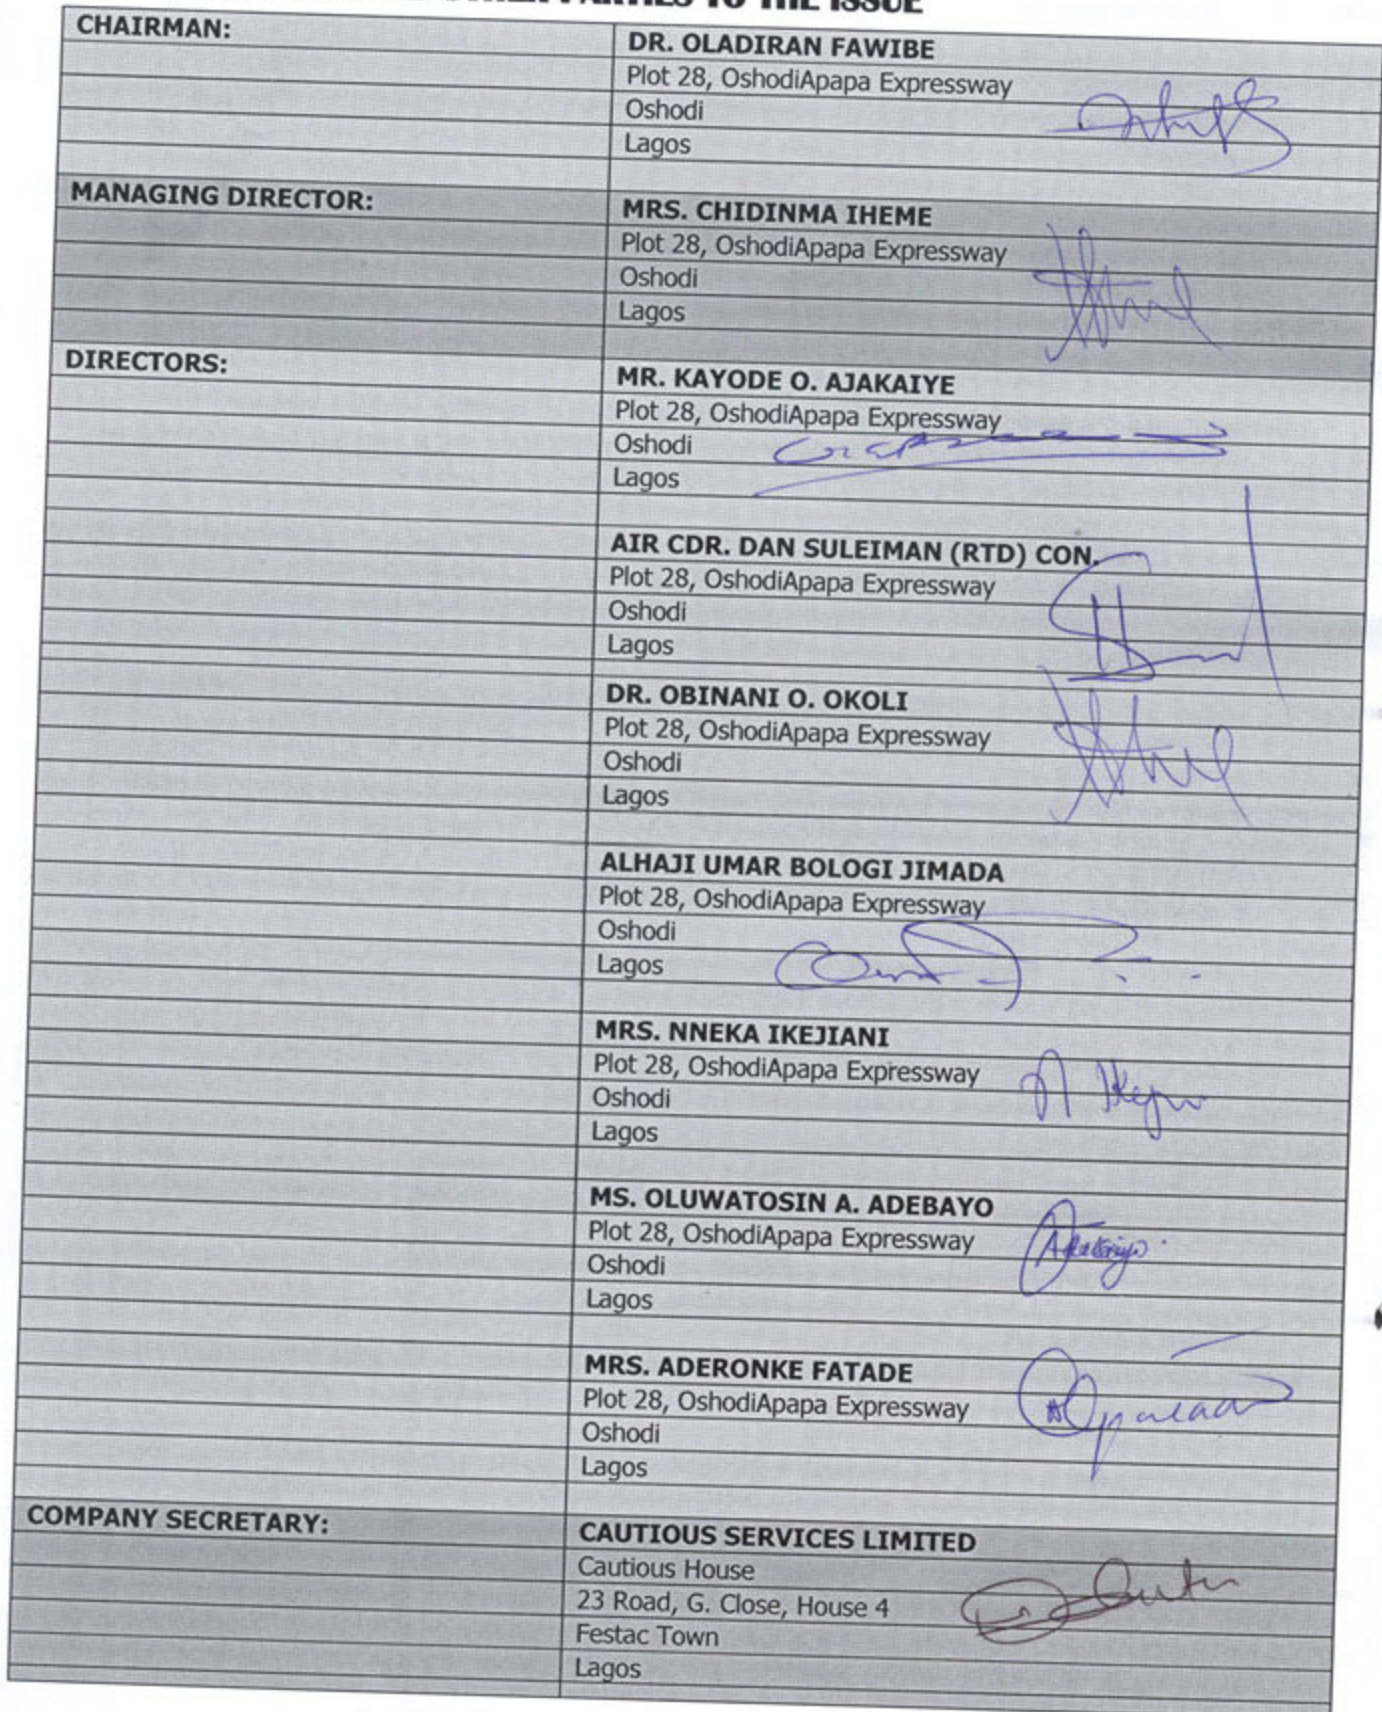 OTHER PARTIES TO THE ISSUE
CHAIRMAN:
DR. OLADIRAN FAWIBE
Plot 28, OshodiApapa Expressway
Oshodi
Lagos
MANAGING DIRECTOR:
MRS. CHIDINMA IHEME
Plot 28, OshodiApapa Expressway
Oshodi
Lagos
DIRECTORS:
MR. KAYODE O. AJAKAIYE
Plot 28, OshodiApapa Expressway
Oshodi
Lagos
AIR CDR. DAN SULEIMAN (RTD) CON.
Plot 28, OshodiApapa Expressway
Oshodi
Lagos
DR. OBINANI O. OKOLI
Plot 28, OshodiApapa Expressway
Oshodi
Lagos
ALHAJI UMAR BOLOGI JIMADA
Plot 28, OshodiApapa Expressway
Oshodi
Lagos
MRS. NNEKA IKEJIANI
Plot 28, OshodiApapa Expressway
Oshodi
Lagos
MS. OLUWATOSIN A. ADEBAYO
Plot 28, OshodiApapa Expressway
Oshodi
Lagos
MRS. ADERONKE FATADE
Plot 28, OshodiApapa Expressway
Oshodi
Lagos
COMPANY SECRETARY:
CAUTIOUS SERVICES LIMITED
Cautious House
23 Road, G. Close, House 4
Festac Town
Lagos